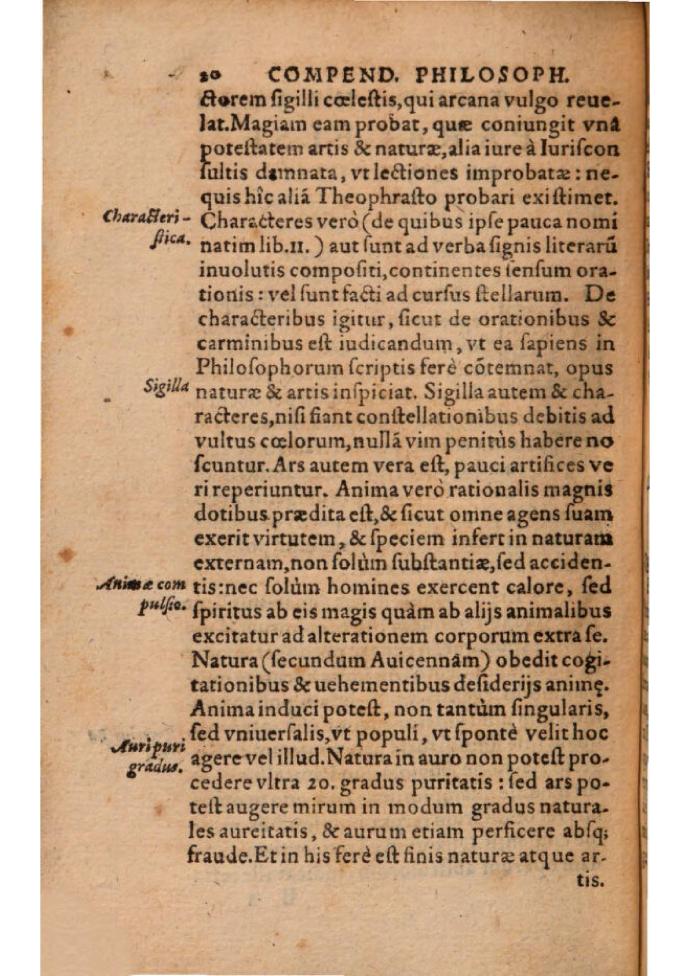 20 COMPEND. PHILOSOPH.
ctorem sigilli cœlestis, qui arcana vulgo reue-
lat. Magiam eam probat, quæ coniungit vnâ
potestatem artis & naturæ, alia iure à Iuriscon
sultis damnata, vt lectiones improbatæ: ne-
quis hîc aliâ Theophrasto probari existimet.
Characteri-
stica.
Characteres verò (de quibus ipse pauca nomi
natim lib. 11.) aut sunt ad verba signis literarũ
inuolutis compositi, continentes sensum ora-
tionis: vel sunt facti ad cursus stellarum. De
characteribus igitur, sicut de orationibus &
carminibus est iudicandum, vt ea sapiens in
Philosophorum scriptis ferè cõtemnat, opus
Sigilla
naturæ & artis inspiciat. Sigilla autem & cha-
racteres, nisi fiant constellationibus debitis ad
vultus cœlorum, nullâ vim penitùs habere no
scuntur. Ars autem vera est, pauci artifices ve
ri reperiuntur. Anima verò rationalis magnis
dotibus prædita est, & sicut omne agens suam
exerit virtutem, & speciem infert in naturam
externam, non solùm substantiæ, sed acciden-
Animæ com
pulsio.
tis: nec solùm homines exercent calore, sed
spiritus ab eis magis quàm ab alijs animalibus
excitatur ad alterationem corporum extra se.
Natura (secundum Auicennâm) obedit cogi-
tationibus & uehementibus desiderijs animę.
Anima induci potest, non tantùm singularis,
sed vniuersalis, vt populi, vt spontè velit hoc
Auri puri
gradus.
agere vel illud. Natura in auro non potest pro-
cedere vltra 20. gradus puritatis: sed ars po-
test augere mirum in modum gradus natura-
les aureitatis, & aurum etiam perficere absq;
fraude. Et in his ferè est finis naturæ atque ar-
tis.